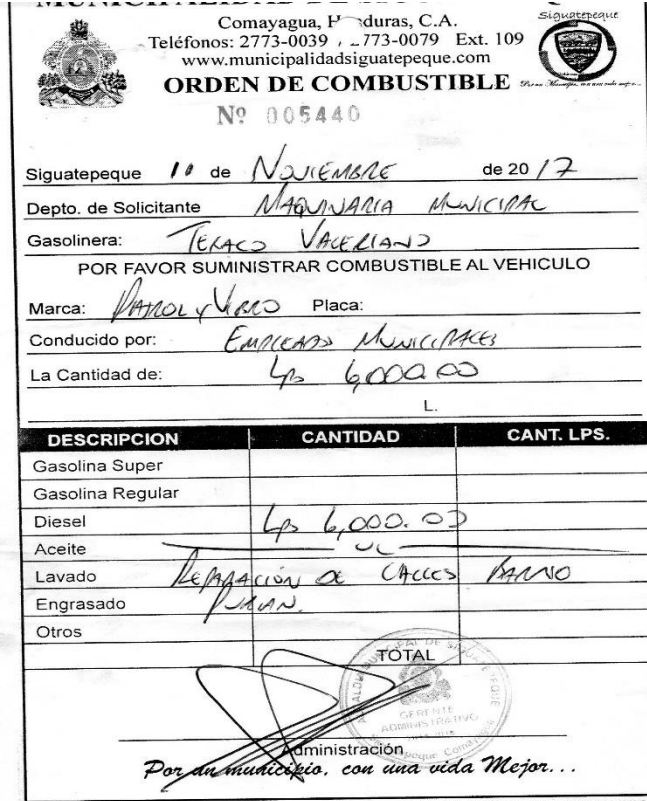 MUNICIPALIDAD DE SIGUATEPEQ
Comayagua, H duras, C.A.
Siguatepeque
Teléfonos: 2773-0039 , 773-0079 Ext. 109
www.municipalidadsiguatepeque.com
ORDEN DE COMBUSTIBLE
Nº 005440
Siguatepeque 10 de NOVIEMBRE de 2017
Depto. de Solicitante MAQUINARIA MUNICIPAL
Gasolinera: TEXACO VALERIANO
POR FAVOR SUMINISTRAR COMBUSTIBLE AL VEHICULO
Marca: PATROL y VIBRO Placa:
Conducido por: EMPLEADOS MUNICIPALES
La Cantidad de: Lps 6,000.00
L.
DESCRIPCION CANTIDAD CANT. LPS.
Gasolina Super
Gasolina Regular
Diesel Lps 6,000.00
Aceite UL
Lavado REPARACIÓN DE CALLES BARRIO
Engrasado
Otros
TOTAL
GERENTE
ADMINISTRATIVO
Administración
Por un municipio, con una vida Mejor...